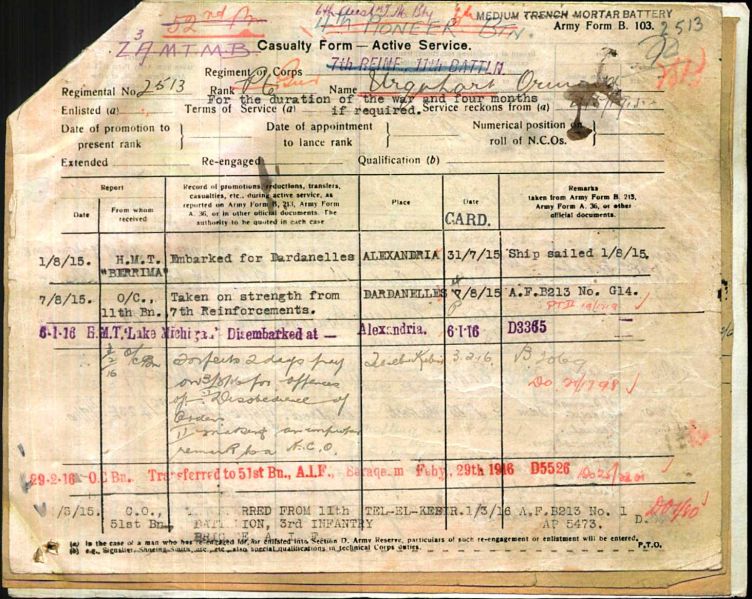 52nd Bn
MEDIUM TRENCH MORTAR BATTERY
4th PIONEER BTN.
Army Form B. 103.
2513
Z A M T M B
Casualty Form — Active Service.
7TH REINF. 11TH BATTLN.
Regiment or Corps
Regimental No. 2513 Rank Pte Name Urquhart
For the duration of the war and four months
Enlisted (a) Terms of Service (a) Service reckons from (a)
if required.
Date of promotion to present rank
Date of appointment to lance rank
Numerical position on roll of N.C.Os.
Extended Re-engaged Qualification (b)
Report
Date
From whom received
Record of promotions, reductions, transfers, casualties, etc., during active service, as reported on Army Form B. 213, Army Form A. 36, or in other official documents. The authority to be quoted in each case
Place
Date
CARD.
Remarks
taken from Army Form B. 213, Army Form A. 36, or other official documents.
1/8/15. H.M.T. Embarked for Dardanelles ALEXANDRIA 31/7/15 Ship sailed 1/8/15.
"BERRIMA"
7/8/15. O/C., Taken on strength from DARDANELLES /8/15 A.F.B213 No. G14.
11th Bn., 7th Reinforcements.
6-1-16 H.M.T. 'Lake Michigan.' Disembarked at — Alexandria. 6-1-16 D3365
O/C Bn Forfeits 2 days pay Tel el Kebir 3.2.16
for offences
of I Disobedience of
Orders
II making an improper
remark to a N.C.O.
29-2-16 O.C Bn. Transferred to 51st Bn., A.I.F., Feby, 29th 1916 D5526
/3/16. C.O., FROM 11th TEL-EL-KEBIR. 1/3/16 A.F.B213 No. 1
51st Bn., BATTALION, 3rd INFANTRY AP 5473.
BRIGADE A.I.F.
(a) In the case of a man who has re-engaged for, or enlisted into Section D, Army Reserve, particulars of such re-engagement or enlistment will be entered.
(b) e.g., Signaller, Shoeing Smith, etc., etc., also special qualifications in technical Corps duties.
P.T.O.